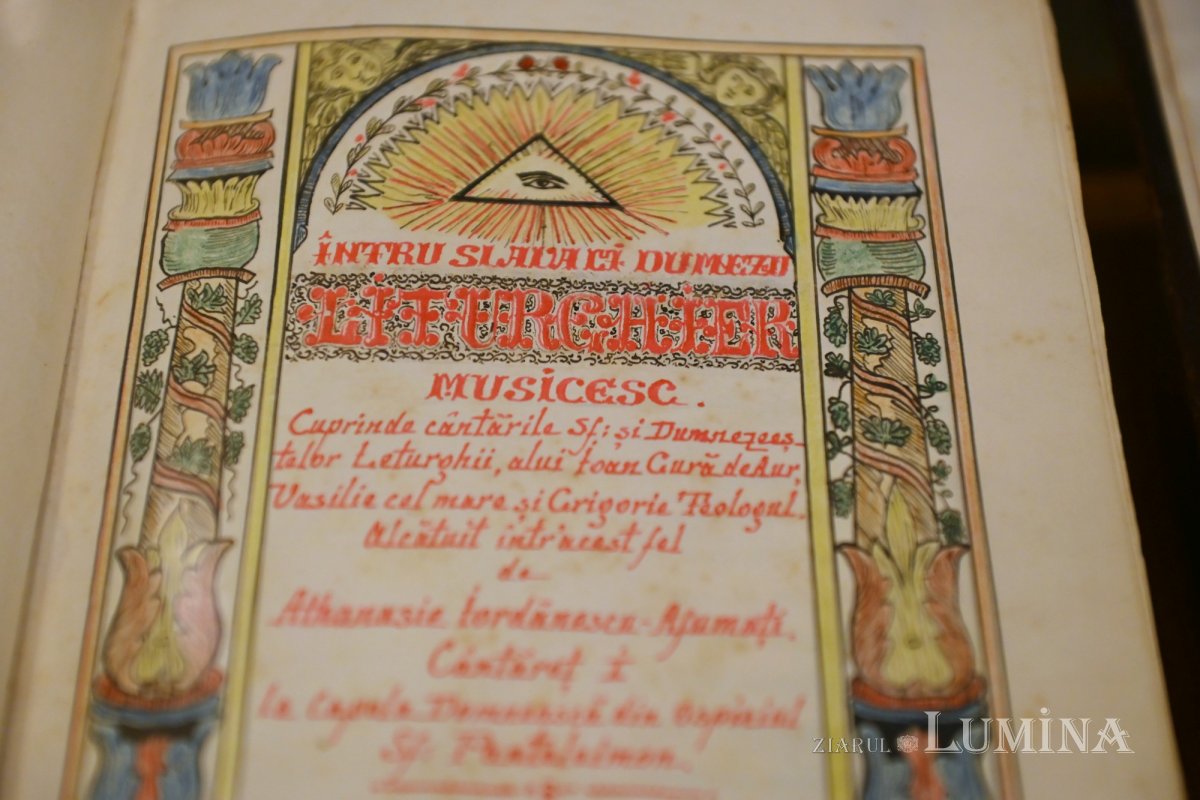 ÎNTRU SLAVA LUI DUMEZEU
LITURGHIER
MUSICESC.
Cuprinde cântările Sf: și Dumnezeeș-
telor Leturghii, alui Ioan Gură de Aur,
Vasilie cel mare și Grigorie Teologul.
Alcătuit într'acest fel
de
Athanasie Iordănescu-Afumați.
Cântăreț I
la Capela Domnească din Ospiciul
Sf. Panteleimon.
ZIARUL LUMINA